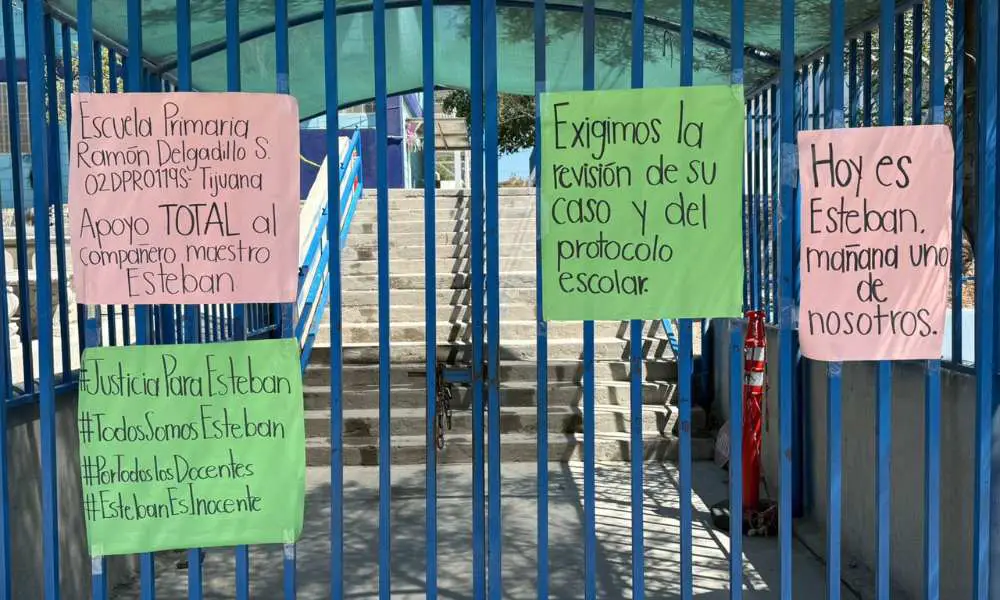 Escuela Primaria
Ramón Delgadillo S.
02DPR0119S- Tijuana
Apoyo TOTAL al
compañero maestro
Esteban
#JusticiaParaEsteban
#TodosSomosEsteban
#PorTodoslosDocentes
#EstebanEsInocente
Exigimos la
revisión de su
caso y del
protocolo
escolar.
Hoy es
Esteban,
mañana uno
de
nosotros.